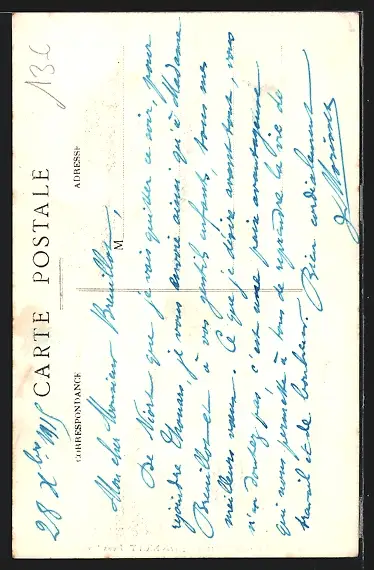 13 c
CARTE POSTALE
CORRESPONDANCE
ADRESSE
M
28 Xbre 1915
Mon cher Monsieur Breuillot,
De Niort que je vais quitter ce soir, pour
rejoindre Thouars, je vous envoie ainsi qu'à Madame
Breuillot et à vos gentils enfants, tous mes
meilleurs vœux. Ce que je désire avant tout,
n'en doutez pas, c'est une paix avantageuse
qui nous permette à tous de reprendre la vie de
travail et de bonheur. Bien cordialement